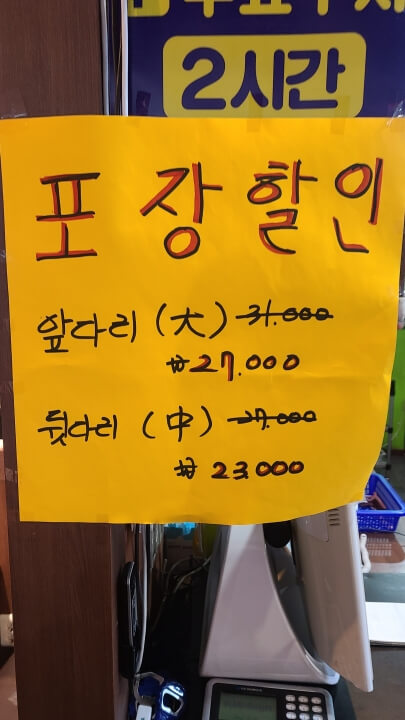 2시간
포장할인
앞다리 (大) 31.000
₩27.000
뒷다리 (中) 27.000
₩23.000